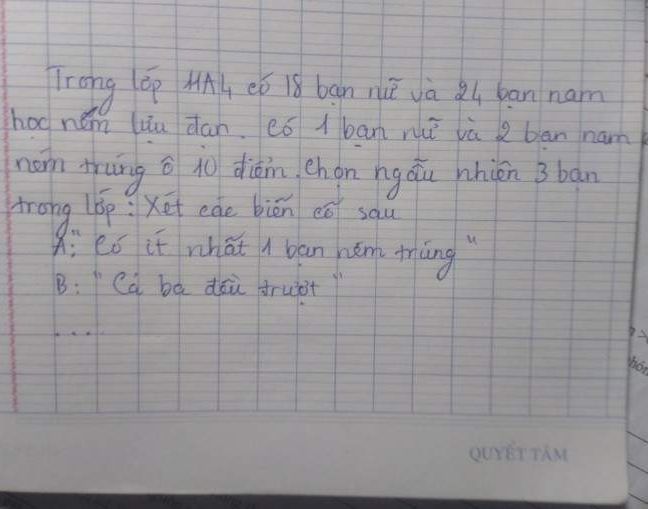 Trong lớp 11A4 có 18 bạn nữ và 24 bạn nam
học ném lựu đạn. Có 1 bạn nữ và 2 bạn nam
ném trúng ô 10 điểm. Chọn ngẫu nhiên 3 bạn
trong lớp: Xét các biến cố sau
A: "Có ít nhất 1 bạn ném trúng"
B: "Cả ba đều trượt"
....
QUYẾT TÂM